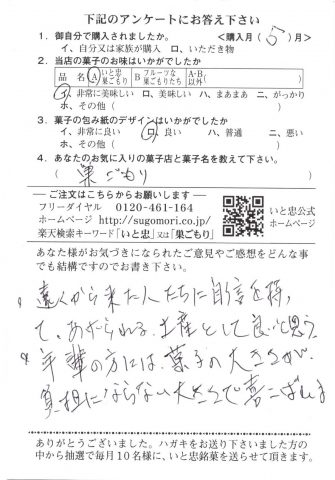 下記のアンケートにお答え下さい
1．御自分で購入されましたか。 <購入月（ 5 ）月>
イ、自分又は家族が購入 ロ、いただき物
2．当店の菓子のお味はいかがでしたか
品 名 A いと忠巣ごもり B フルーツな巣ごもりたち A・B以外（ ）
イ、非常に美味しい ロ、美味しい ハ、まぁまぁ ニ、がっかり
ホ、その他（ ）
3．菓子の包み紙のデザインはいかがでしたか
イ、非常に良い ロ、良い ハ、普通 ニ、悪い
ホ、その他（ ）
4．あなたのお気に入りの菓子店と菓子名を教えて下さい。
（ 巣ごもり ）
―ご注文はこちらからお願いします―
フリーダイヤル 0120-461-164
ホームページ http://sugomori.co.jp/
楽天検索キーワード「いと忠」又は「巣ごもり」
いと忠公式
ホームページ
あなた様がお気づきになられたご意見やご感想をどんな事
でも結構ですのでお書き下さい。
遠くから来た人たちに自信を持っ
て、あげられる土産として良いと思う
年輩の方には、菓子の大きさが
負担にならない大きさで喜こばれます
ありがとうございました。ハガキをお送り下さいました方の
中から抽選で毎月10名様に、いと忠銘菓を送らせて頂きます。